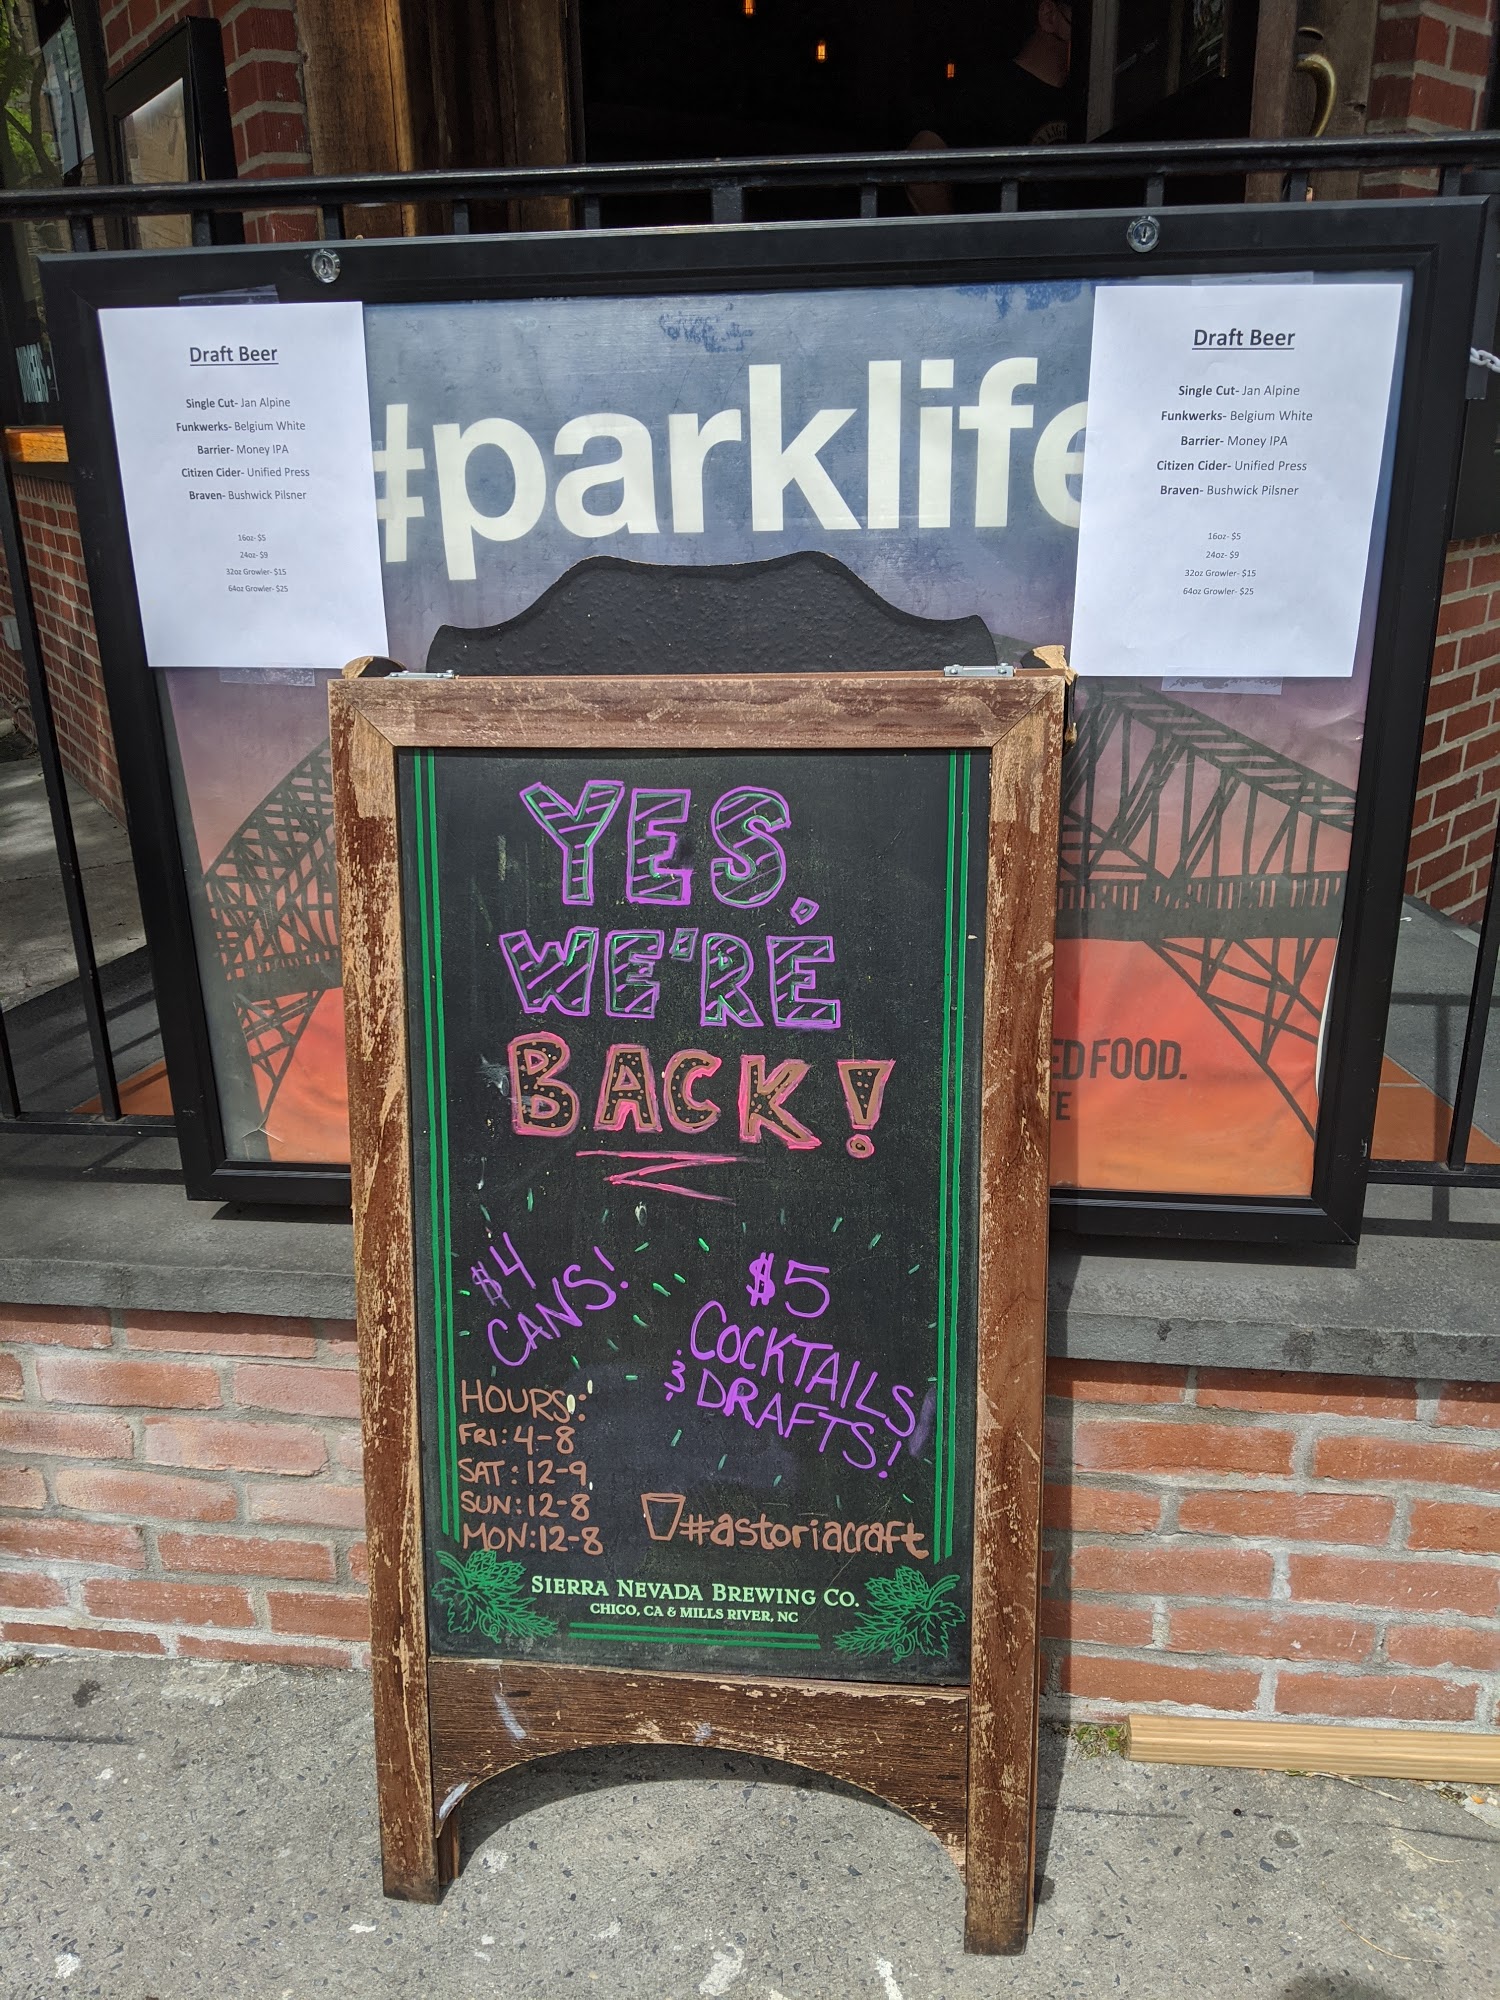 Draft Beer
Single Cut- Jan Alpine
Funkwerks- Belgium White
Barrier- Money IPA
Citizen Cider- Unified Press
Braven- Bushwick Pilsner
16oz- $5
24oz- $9
32oz Growler- $15
64oz Growler- $25
#parklife
Draft Beer
Single Cut- Jan Alpine
Funkwerks- Belgium White
Barrier- Money IPA
Citizen Cider- Unified Press
Braven- Bushwick Pilsner
16oz- $5
24oz- $9
32oz Growler- $15
64oz Growler- $25
ED FOOD.
TE
YES,
WE'RE
BACK!
$4
CANS!
$5
COCKTAILS
& DRAFTS!
HOURS:
FRI: 4-8
SAT: 12-9
SUN: 12-8
MON: 12-8
#astoriacraft
SIERRA NEVADA BREWING CO.
CHICO, CA & MILLS RIVER, NC